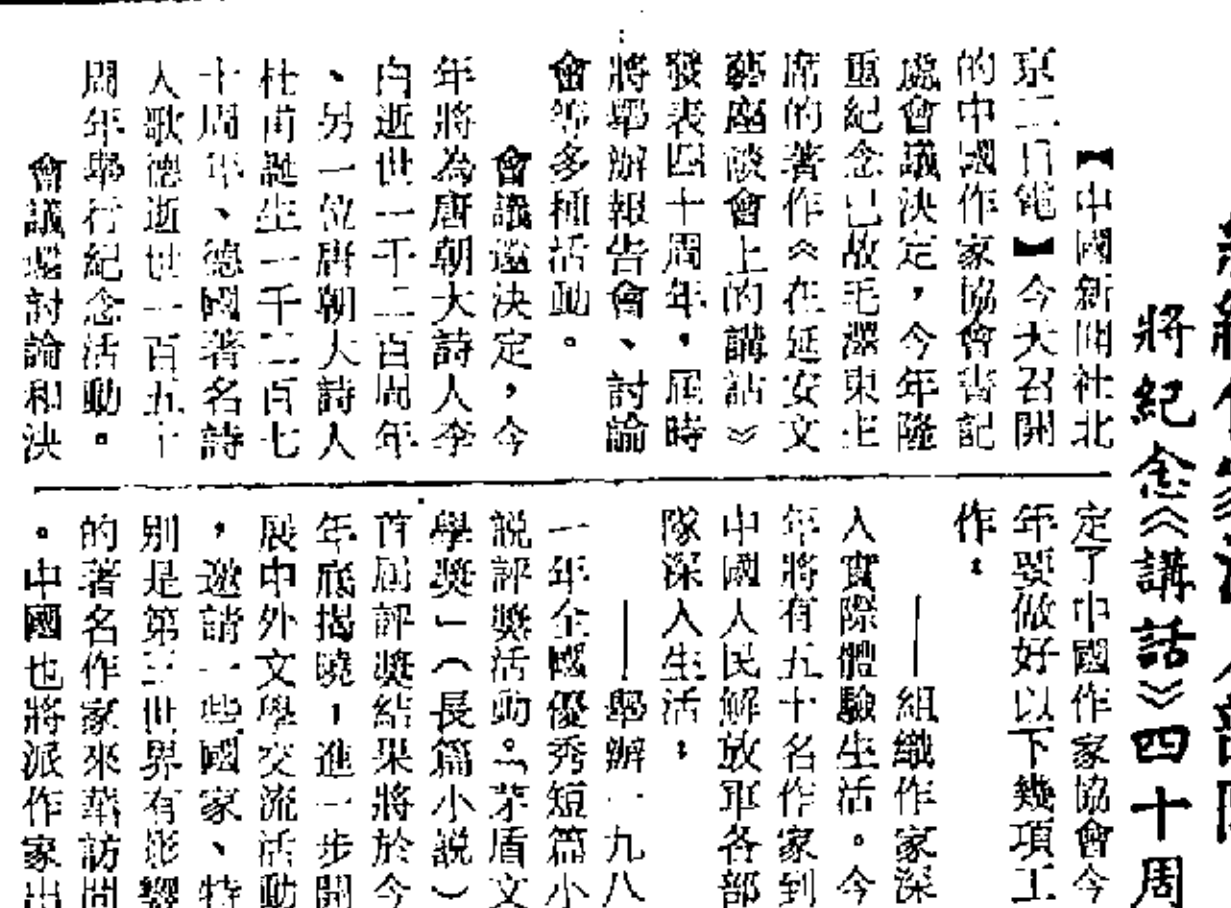 組織作家深入部隊
將紀念《講話》四十周
【中國新聞社北
京二日電】今天召開
的中國作家協會書記
處會議決定，今年隆
重紀念已故毛澤東主
席的著作《在延安文
藝座談會上的講話》
發表四十周年，屆時
將舉辦報告會、討論
會等多種活動。
會議還決定，今
年將為唐朝大詩人李
白逝世一千二百周年
、另一位唐朝大詩人
杜甫誕生一千二百七
十周年、德國著名詩
人歌德逝世一百五十
周年舉行紀念活動。
會議還討論和決
定了中國作家協會今
年要做好以下幾項工
作：
——組織作家深
入實際體驗生活。今
年將有五十名作家到
中國人民解放軍各部
隊深入生活；
——舉辦一九八
一年全國優秀短篇小
說評獎活動。「茅盾文
學獎」（長篇小說）
首屆評獎結果將於今
年底揭曉；進一步開
展中外文學交流活動
，邀請一些國家、特
別是第三世界有影響
的著名作家來華訪問
。中國也將派作家出